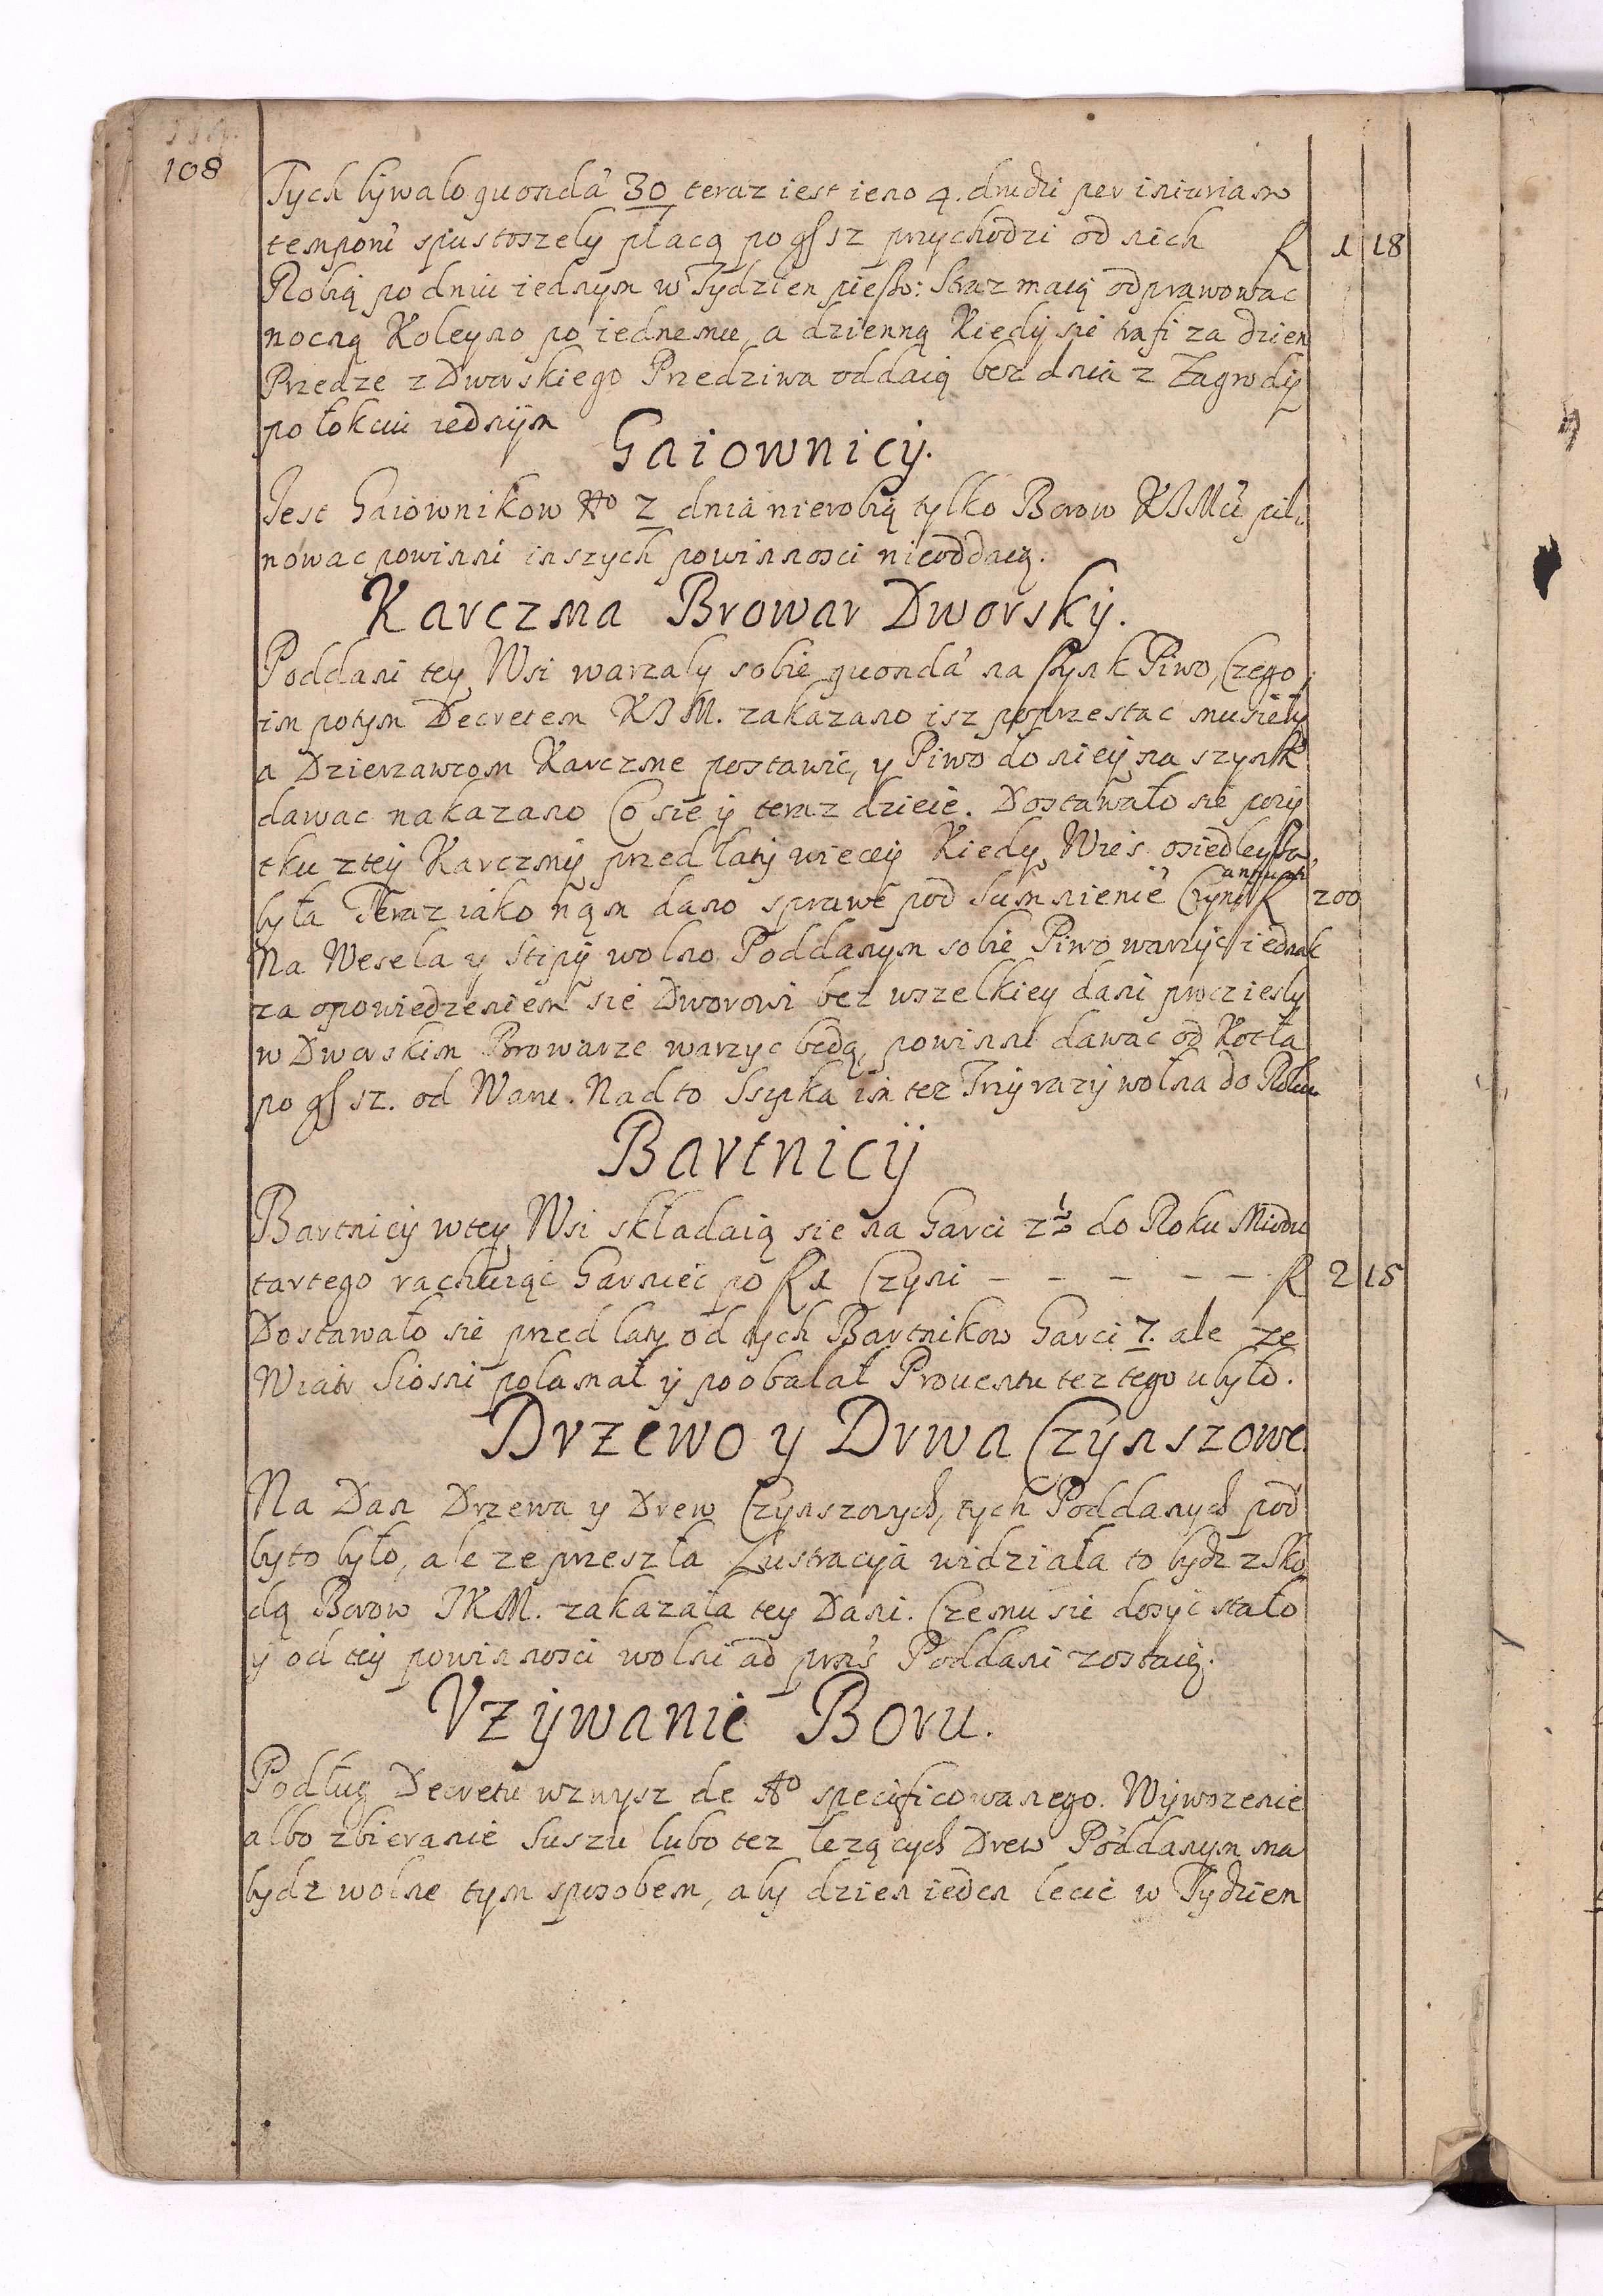 108
Tych bywało quonda' 30 teraz iest ieno 4. drudzi per iniuriam
temporu' spustoszely płacą po gs sz przychodzi od nich f 1 18
Robią po dniu iednym w Tydzien pieszo: Straz maią odprawowac
nocną Koleyno po iednemu, a dzienną Kiedy sie trafi za dzien
Przedze z Dworskiego Przedziwa oddaią bez dnia z Zagrody
po łokciu iednym
Gaiownicy.
Jest Gaiownikow No 2 dnia nierobią tylko Borow KJMci pil
nowac powinni inszych powinnosci nieoddaią.
Karczma Browar Dworsky.
Poddani tey Wsi warzaly sobie quonda' na szynk Piwo, Czego
im potym Decretem KJM. zakazano isz poprzestac musiely
a Dzierzawcom Karczme postawic, y Piwo do niey na szynk
dawac nakazano Co sie y teraz dzieie. Dostawało sie pozy
tku z tey Karczmy przed laty wiecey Kiedy Wies osiedleysza
była Teraz iako nąm dano sprawe pod Sumnienie Czyni annuati f 200
Na Wesela y Stipy wolno Poddanym sobie Piwo warzyc iednak
za opowiedzeniem sie Dworowi bez wszelkiey dani procz iesly
w Dworskim Browarze warzyc będą, powinni dawac od Kotła
po gs sz. od Waru. Nad to Ssypka im tez Trzy razy wolna do Roku
Bartnicy
Bartnicy w tey Wsi składaią sie na Garci 2 1/2 do Roku Miodu
tartego rachuiąc Garniec po f 1 Czyni - - - - - f 2 15
Dostawało sie przed laty od tych Bartnikow Garci 7. ale ze
Wiatr Siosni polamał y poobalał Prouentu tez tego ubyło.
Drzewo y Drwa Czynszowe
Na Dan Drzewa y Drew Czynszowych, tych Poddanych pod
byto było, ale ze przeszła Lustracya widziała to bydz z Sko
dą Borow JKM. zakazała tey Dani. Czemu sie dosyc stało
y od tey powinnosci wolni ad prns Poddani zostaią.
Vzywanie Boru.
Podług Decretu wzwysz de Ao specificowanego. Wywozenie
albo zbieranie Suszu lubo tez lezących Drew Poddanym ma
bydz wolne tym sposobem, aby dzien ieden lecie w Tydzien